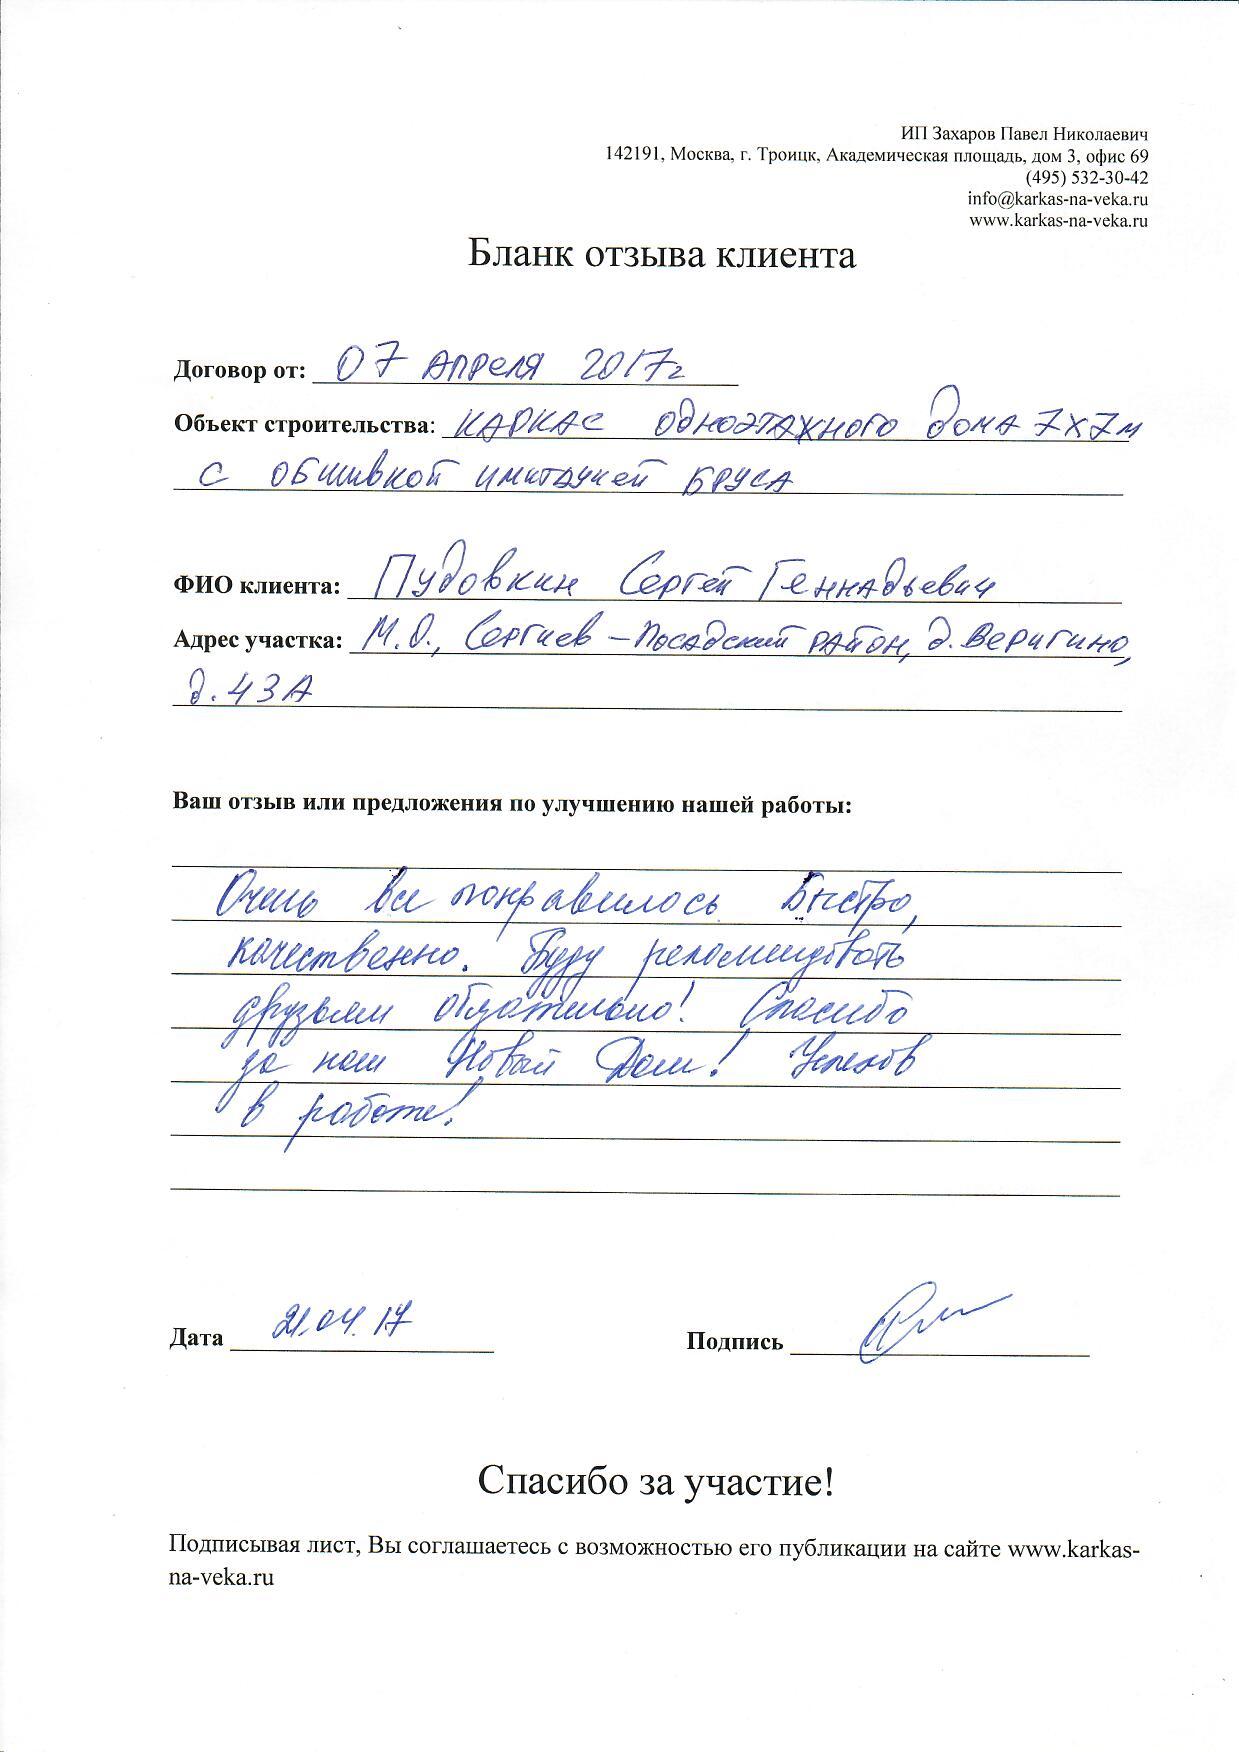 ИП Захаров Павел Николаевич
142191, Москва, г. Троицк, Академическая площадь, дом 3, офис 69
(495) 532-30-42
info@karkas-na-veka.ru
www.karkas-na-veka.ru
Бланк отзыва клиента
Договор от: 07 апреля 2017г
Объект строительства: каркас одноэтажного дома 7х7м
с обшивкой имитацией бруса
ФИО клиента: Пудовкин Сергей Геннадьевич
Адрес участка: М.О., Сергиев-Посадский район, д. Веригино,
д. 43А
Ваш отзыв или предложения по улучшению нашей работы:
Очень все понравилось. Быстро,
качественно. Буду рекомендовать
друзьям обязательно! Спасибо
за наш Новый Дом! Успехов
в работе!
Дата 21.04.17 Подпись
Спасибо за участие!
Подписывая лист, Вы соглашаетесь с возможностью его публикации на сайте www.karkas-
na-veka.ru